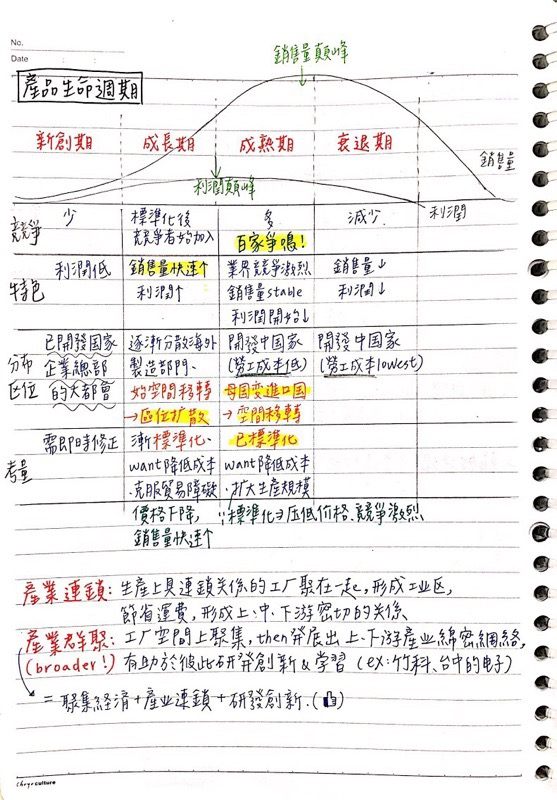 No.
Date
銷售量顛峰
產品生命週期
新創期 成長期 成熟期 衰退期
銷售量
利潤顛峰
利潤
競爭 少 標準化後 多 減少
競爭者始加入 百家爭鳴!
特色 利潤低 銷售量快速↑ 業界競爭激烈 銷售量↓
利潤↑ 銷售量stable 利潤↓
利潤開始↓
已開發國家 逐漸分散海外 開發中国家 開發中国家
分布 企業總部 製造部門、 (勞工成本低) (勞工成本lowest)
區位 的大都會 始空間移轉 母国变進口国
→區位扩散 →空間移轉
需即時修正 漸標準化、 已標準化
考量 want降低成本 want降低成本
.克服貿易障礙 .扩大生產規模
價格下降, ∵標準化→压低价格、競爭激烈
銷售量快速个
產業連鎖: 生產上具連鎖关係的工厂聚在一起,形成工业区,
節省運費,形成上、中、下游密切的关係
產業群聚: 工厂空間上聚集,then発展出上、下游產业綿密網絡,
(broader!) 有助於彼此研発創新&学習 (ex:竹科、台中的电子)
= 聚集経済+產业連鎖+研發創新.(👍)
chryoculture